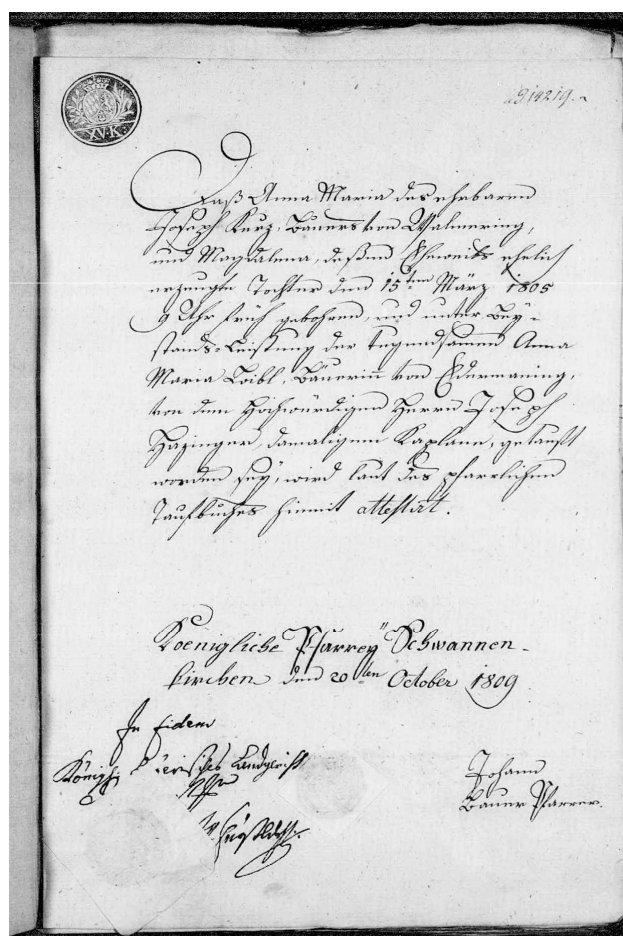 ad 14219.
XV. K.
Daß Anna Maria des ehrbaren
Joseph Kurz, Bauers von Walmering,
und Magdalena, deßen Eheweib ehelich
erzeugte Tochter den 15ten März 1805
9 Uhr früh gebohren, und unter Bey-
stands-Leistung der tugendsamen Anna
Maria Loibl, Bäuerinn von Edermaning,
von dem Hochwürdigen Herrn Joseph
Hazinger, damaligem Kaplane, getauft
worden sey, wird laut des pfarrlichen
Taufbuches hiemit attestirt.
Koenigliche Pfarrey Schwannen-
kirchen den 20ten October 1809
In Fidem
Königl. Landgericht
Johann
Bauer Pfarrer.